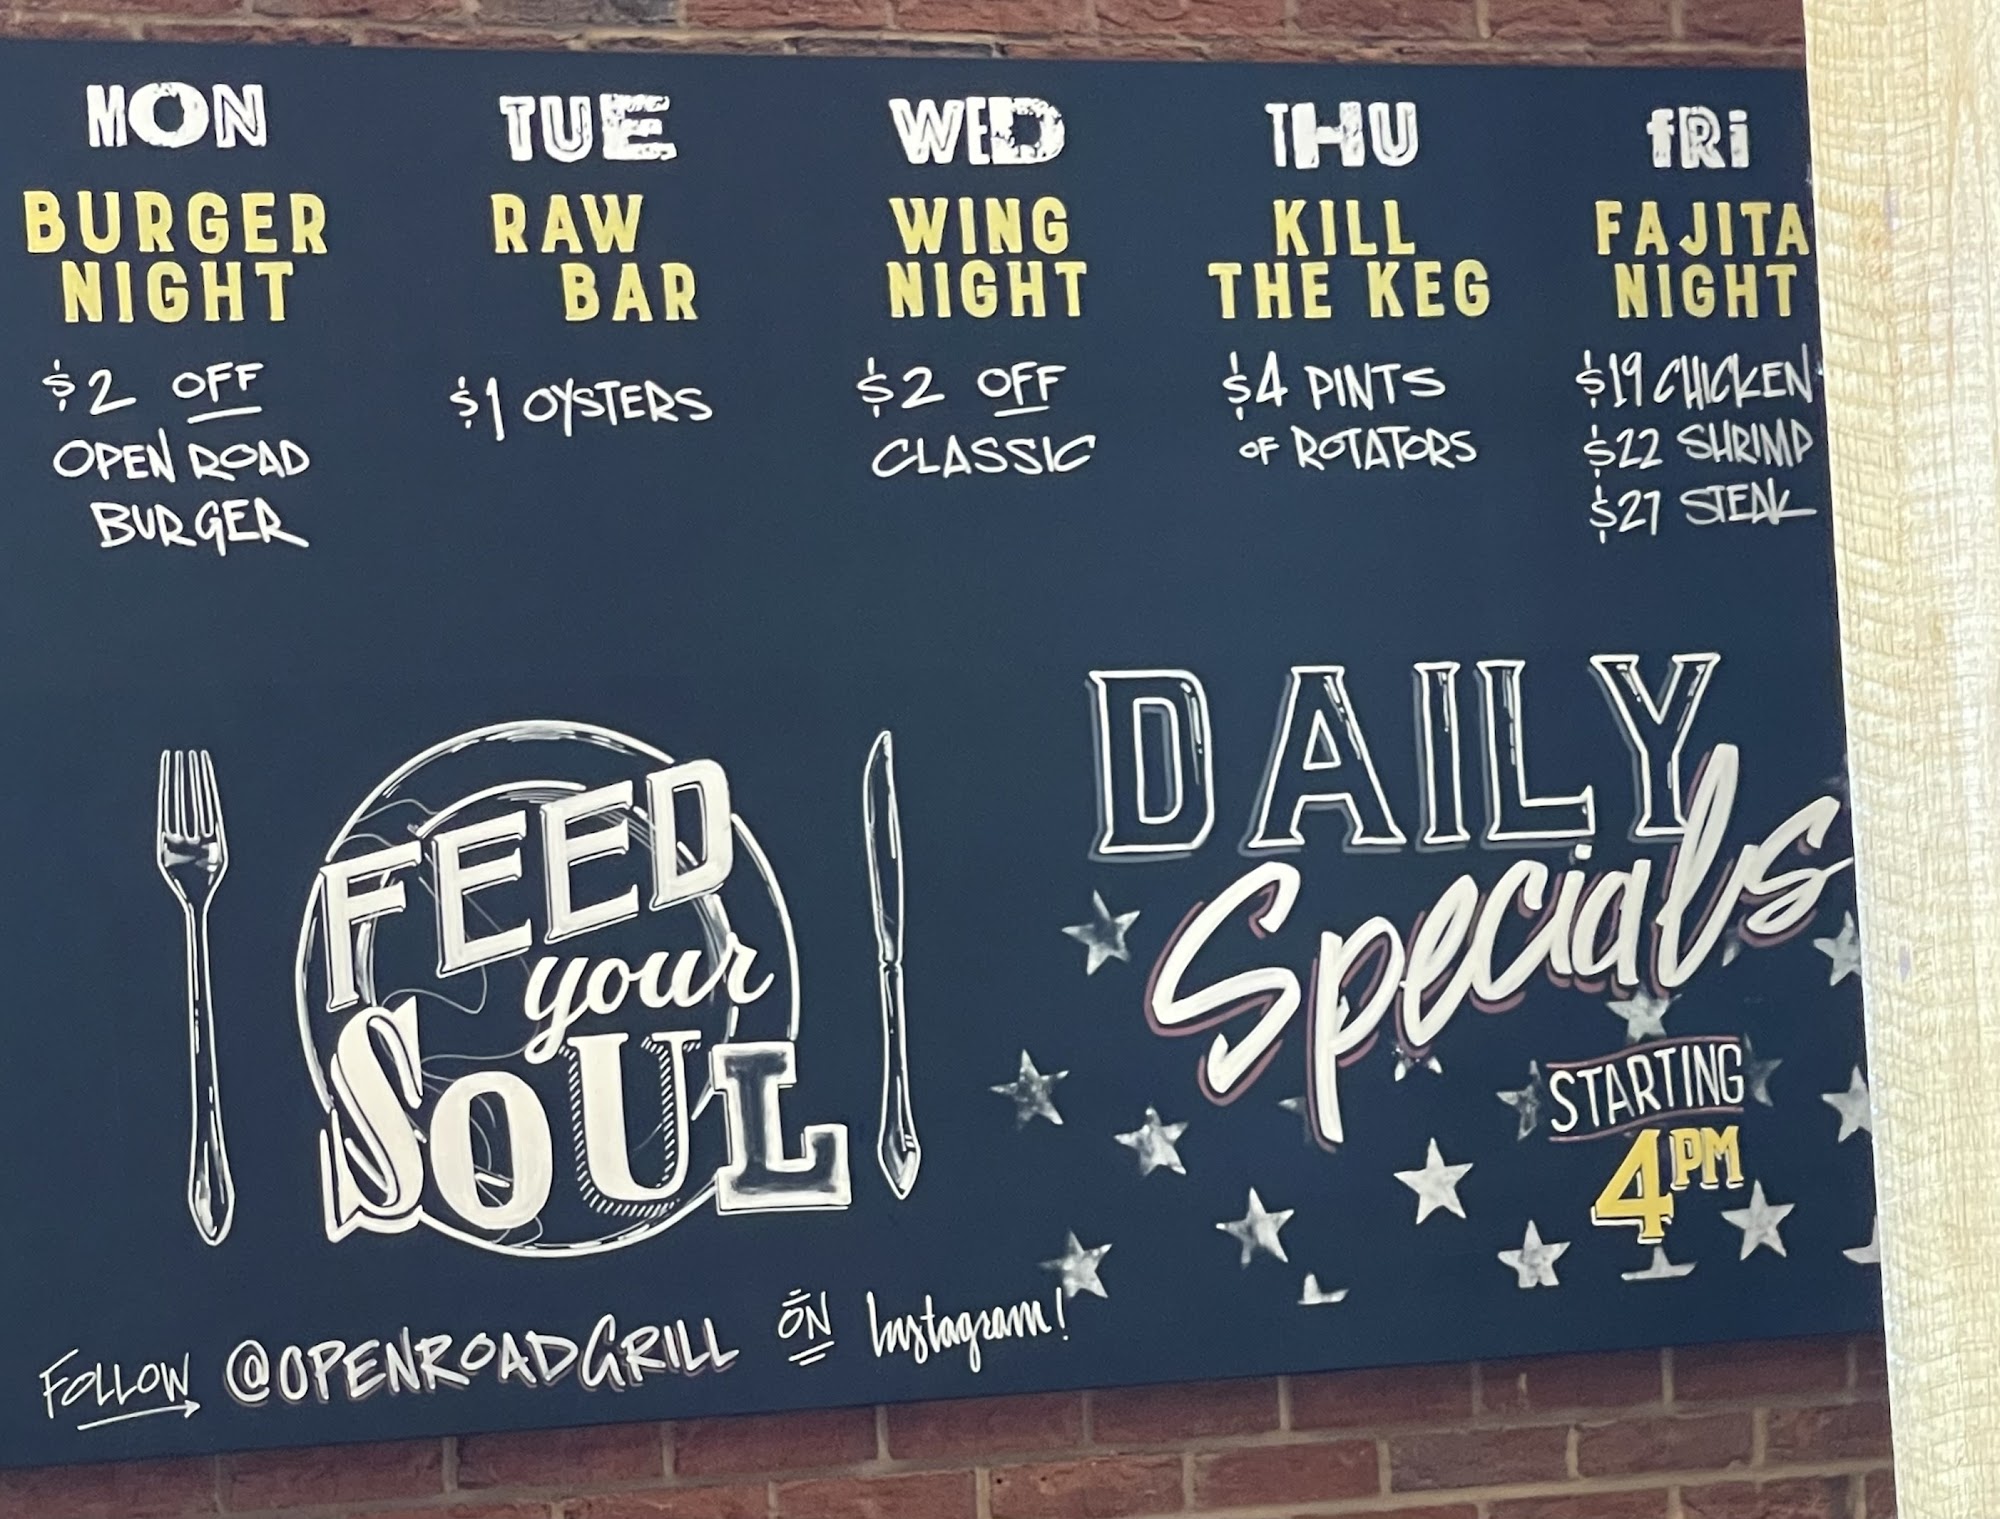 MON
BURGER
NIGHT
$2 OFF
OPEN ROAD
BURGER
TUE
RAW
BAR
$1 OYSTERS
WED
WING
NIGHT
$2 OFF
CLASSIC
THU
KILL
THE KEG
$4 PINTS
OF ROTATORS
fRi
FAJITA
NIGHT
$19 CHICKEN
$22 SHRIMP
$27 STEAK
FEED
your
SOUL
DAILY
Specials
STARTING
4PM
FOLLOW @OPENROADGRILL ON Instagram!